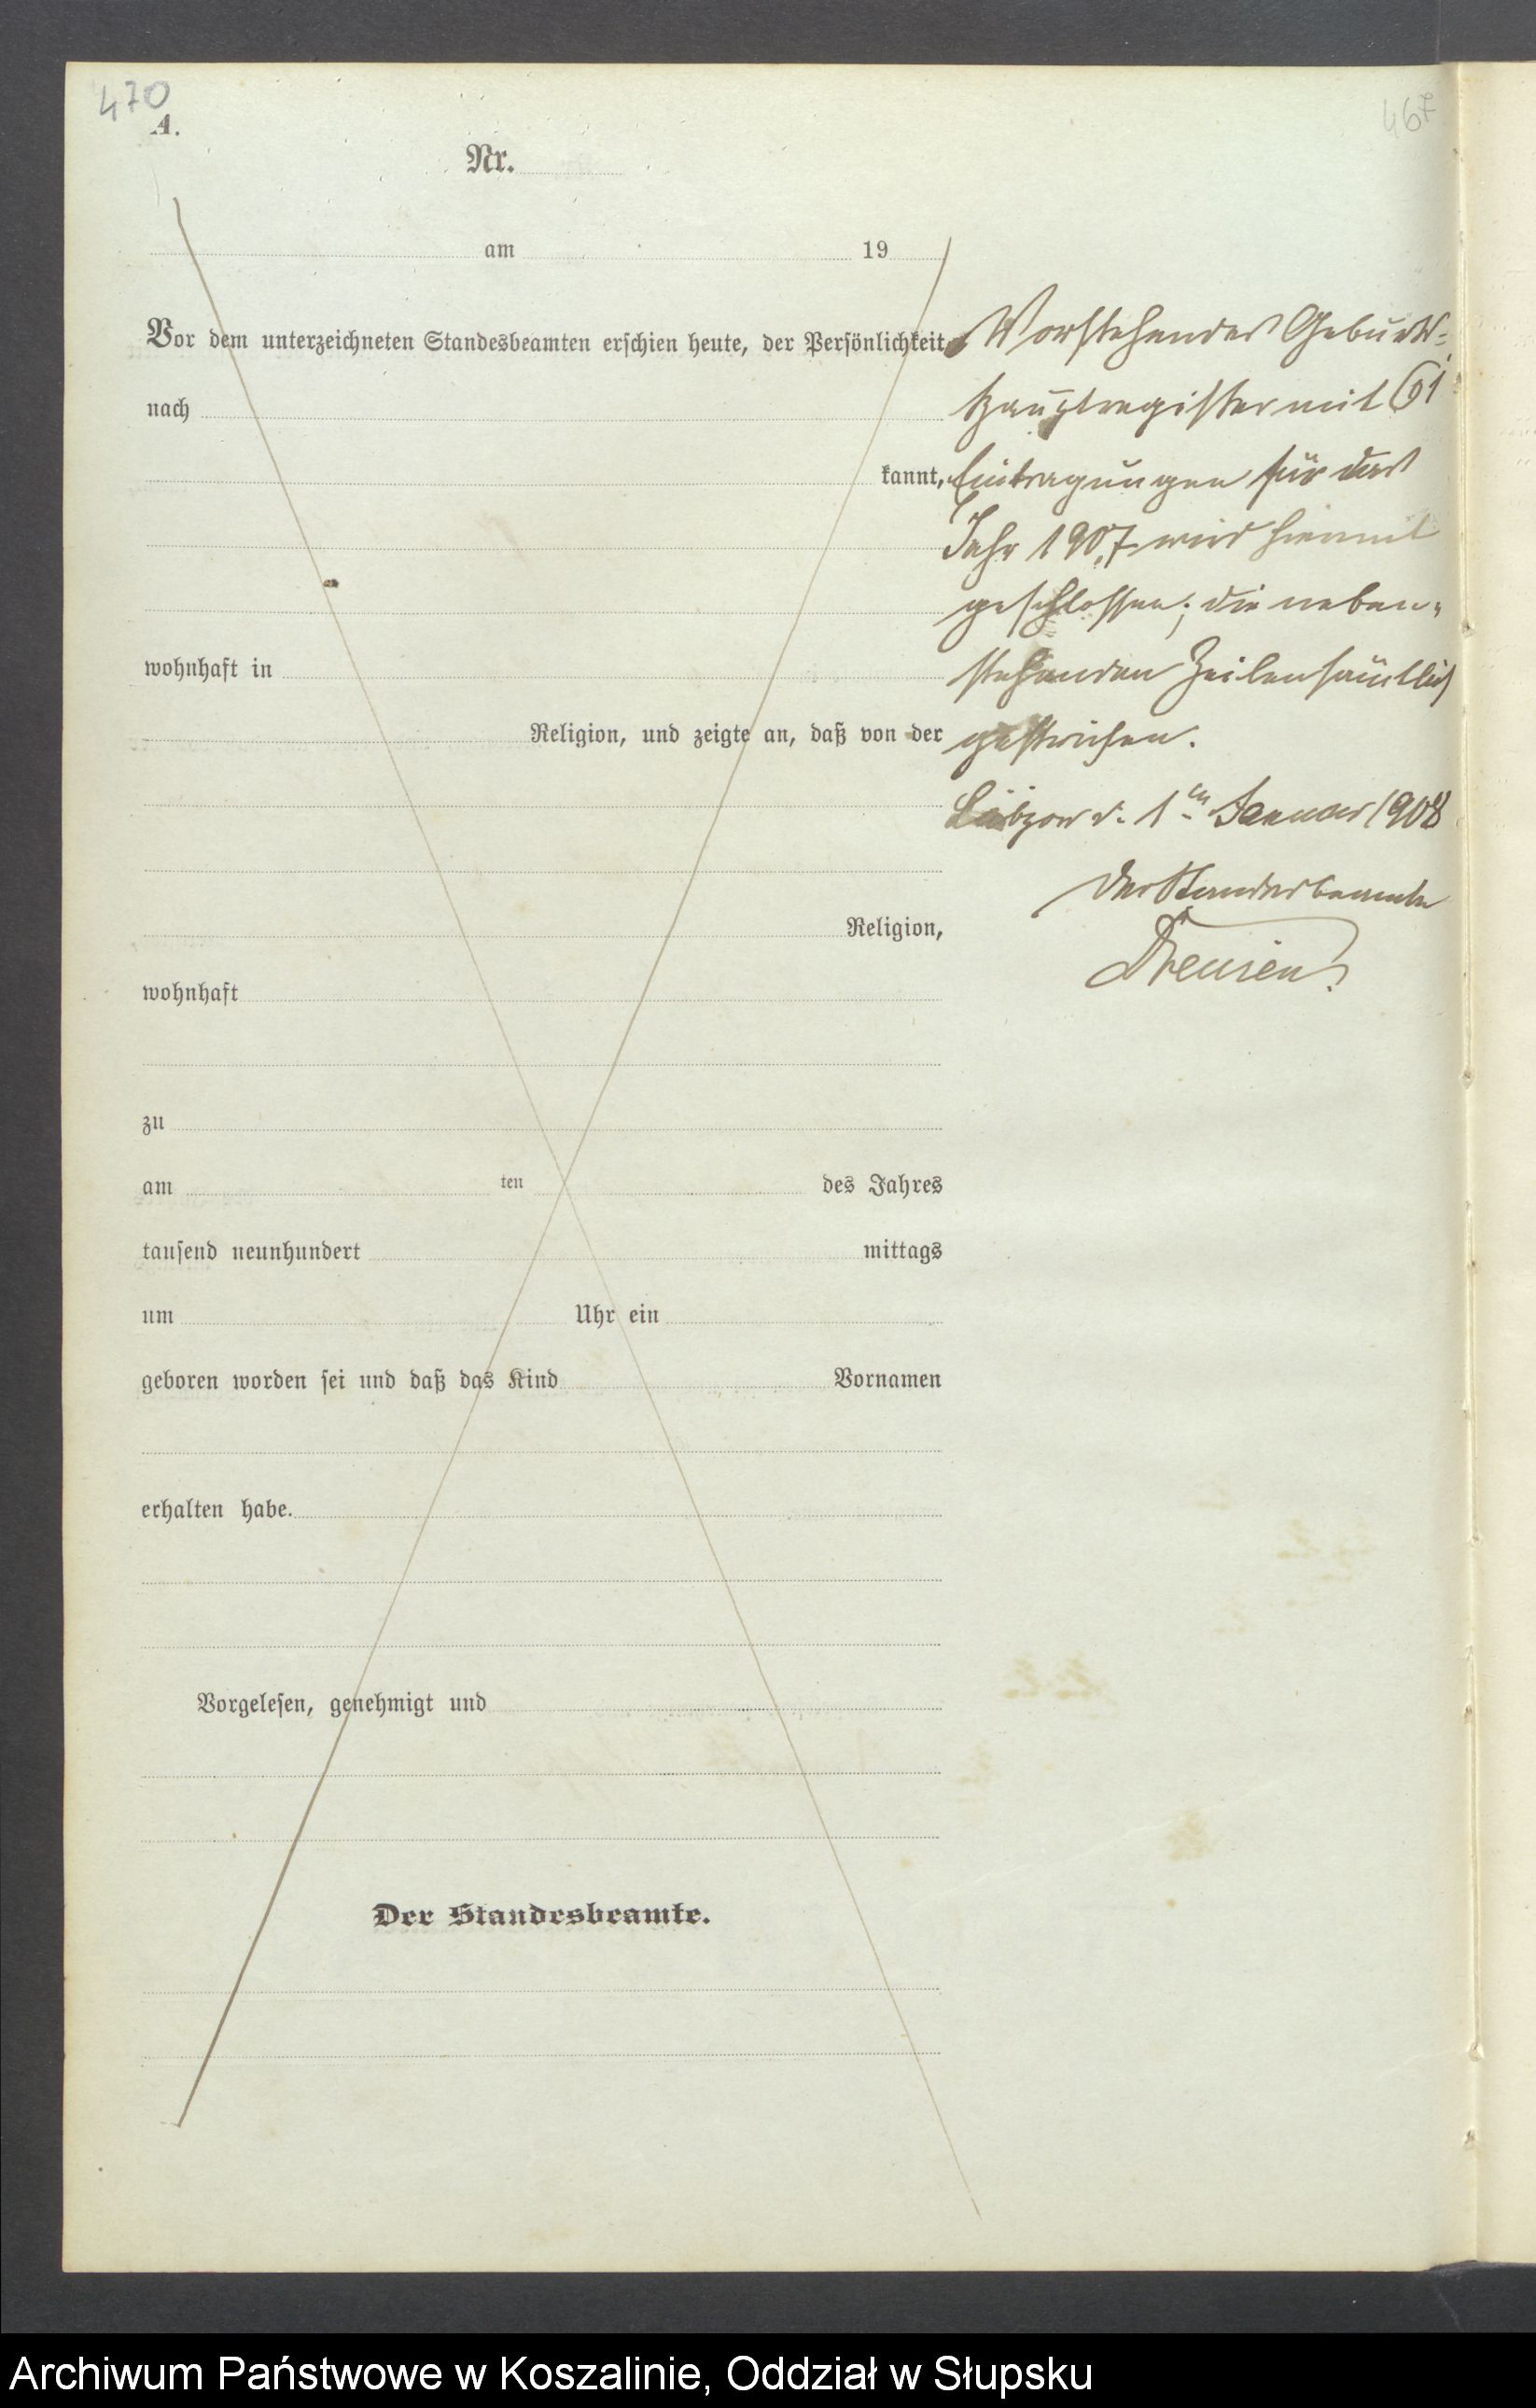 470
467
A.
Nr.
am 19
Vor dem unterzeichneten Standesbeamten erschien heute, der Persönlichkeit
nach
kannt,
wohnhaft in
Religion, und zeigte an, daß von der
Religion,
wohnhaft
zu
am ten des Jahres
tausend neunhundert mittags
um Uhr ein
geboren worden sei und daß das Kind Vornamen
erhalten habe.
Vorgelesen, genehmigt und
Der Standesbeamte.
Vorstehendes Geburts-
hauptregister mit 61
Eintragungen für das
Jahr 1907 wird hiermit
geschlossen; die neben-
stehenden Zeilen sämtlich
gestrichen.
Lübzow d. 1ten Januar 1908
Der Standesbeamte
Archiwum Państwowe w Koszalinie, Oddział w Słupsku